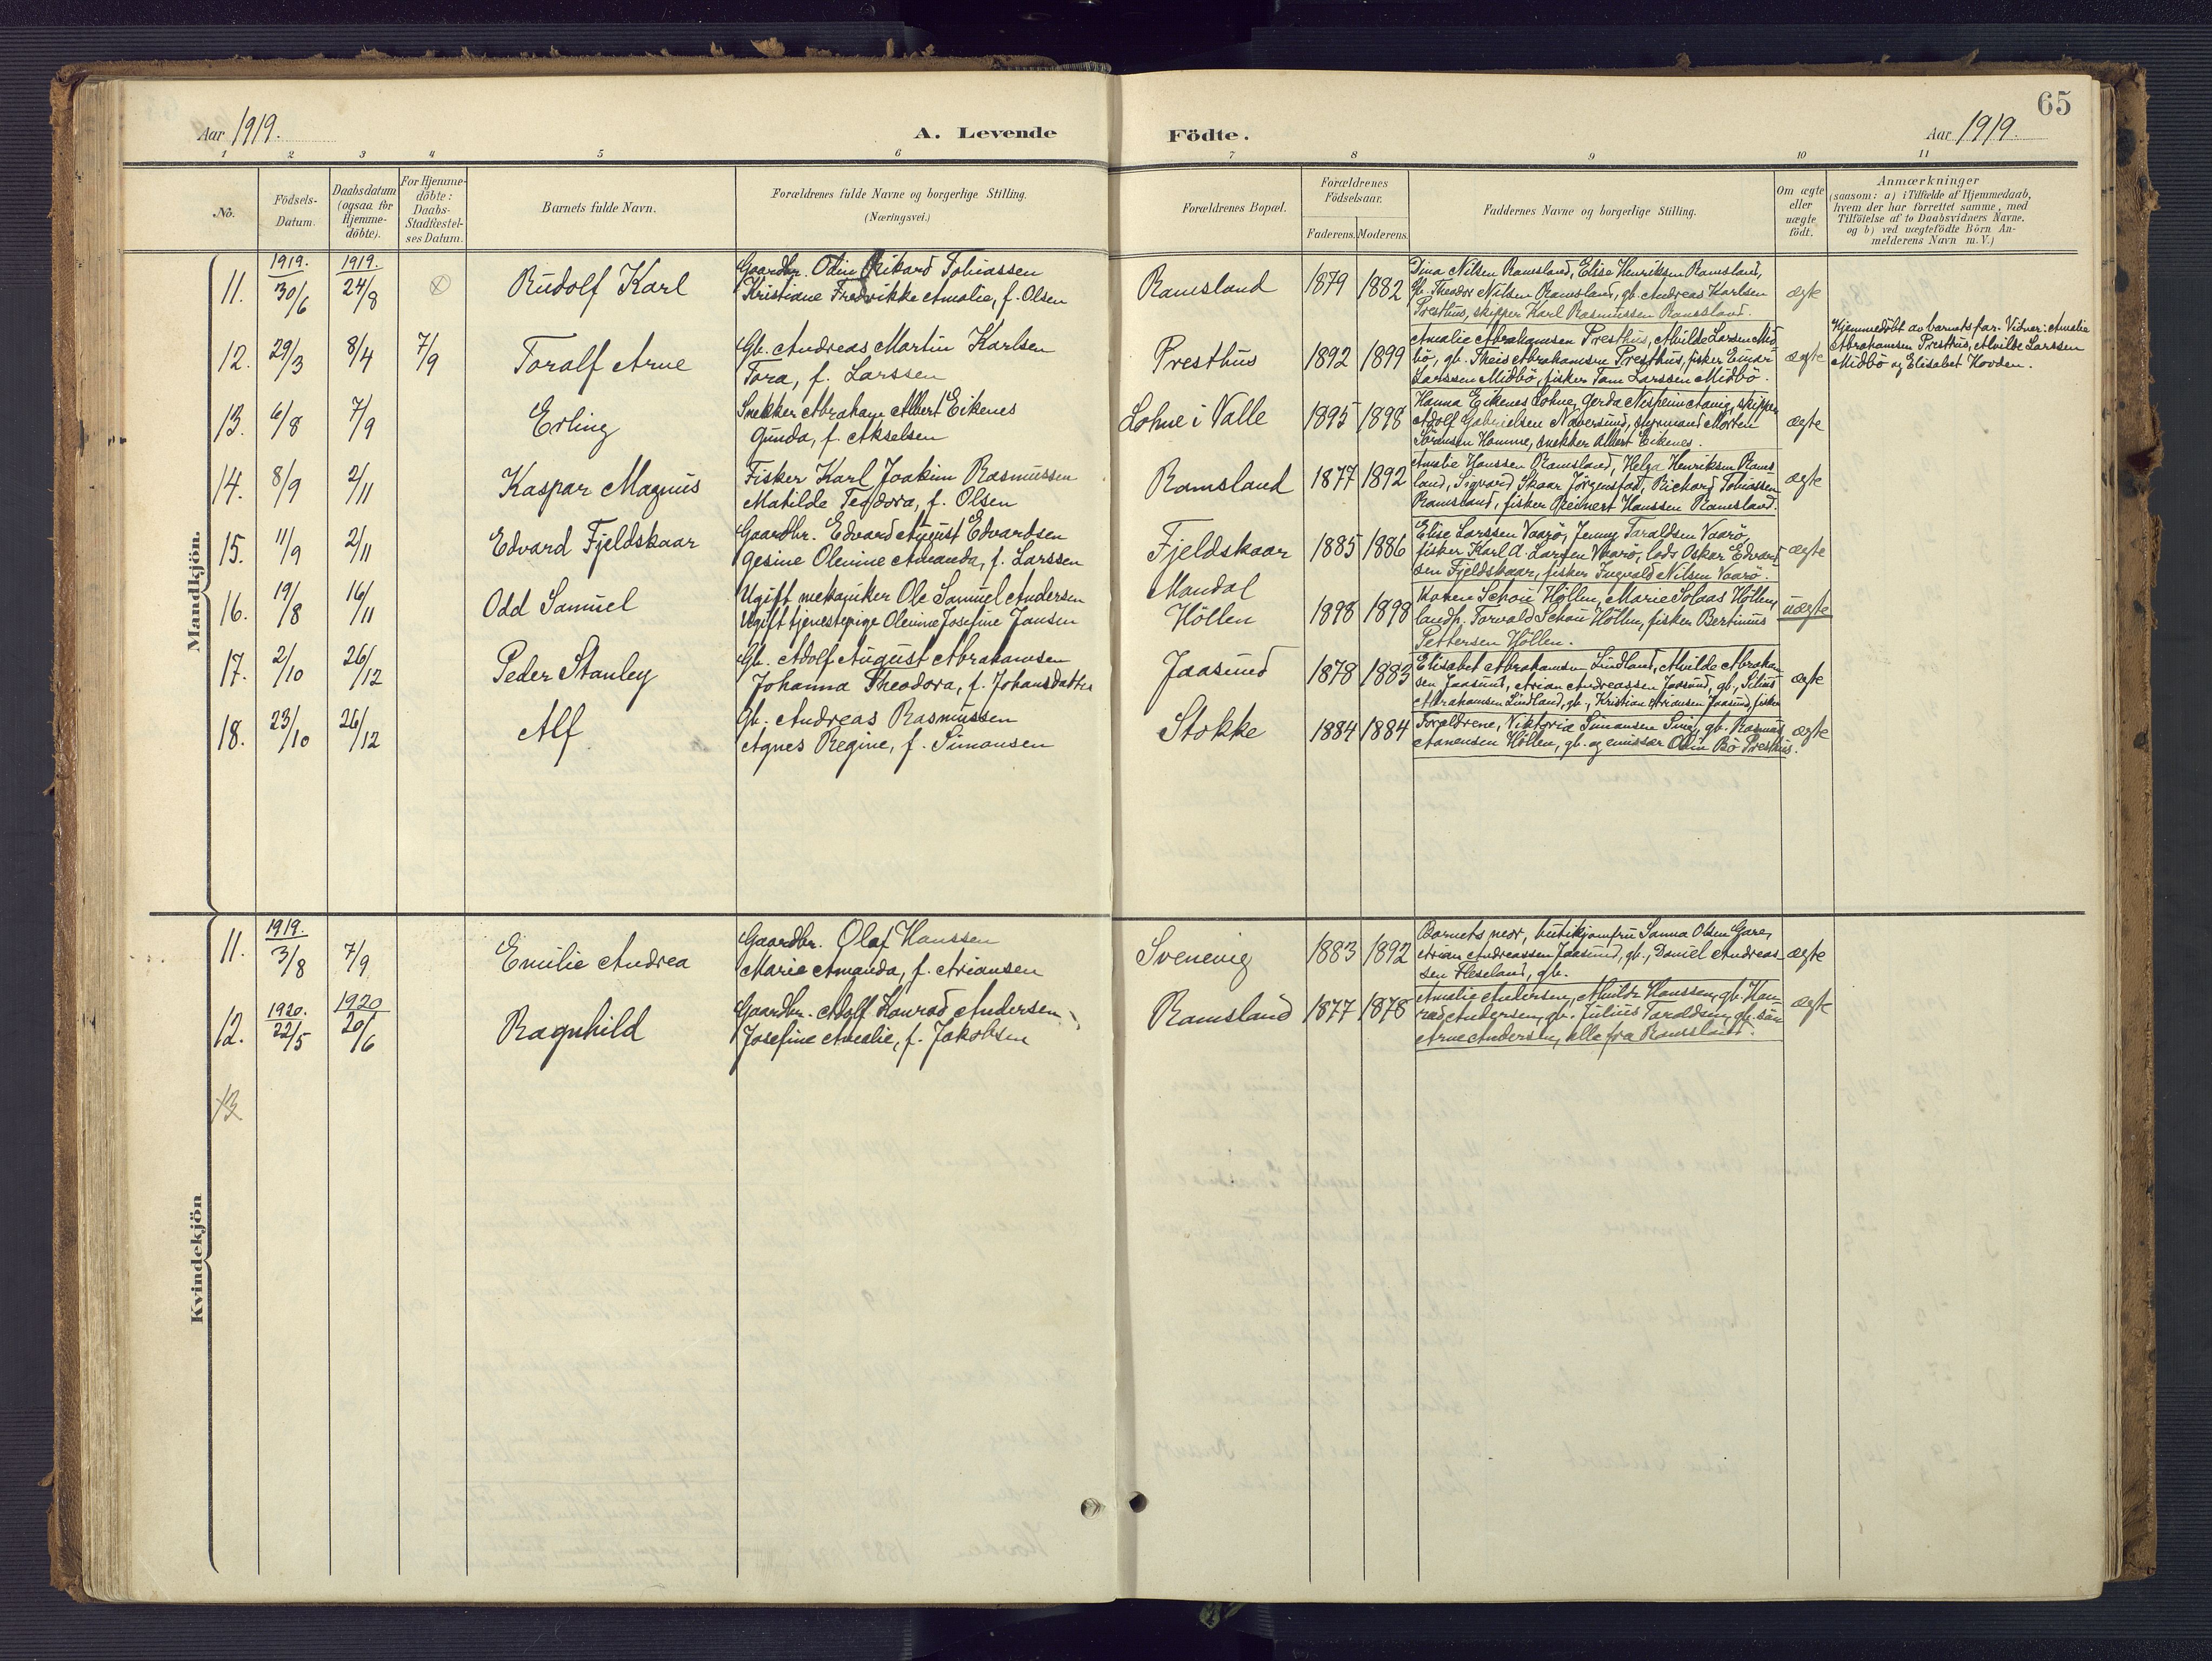 65
Aar 1919.
A. Levende Födte.
Aar 1919.
1 2 3 4 5 6 7 8 9 10 11
No.
Födsels-
Datum.
Daabsdatum
(ogsaa for
Hjemme-
döbte).
For Hjemme-
döbte:
Daabs-
Stadfæstel-
ses Datum.
Barnets fulde Navn.
Forældrenes fulde Navne og borgerlige Stilling.
(Næringsvei.)
Forældrenes Bopæl.
Forældrenes
Födselsaar.
Faderens. Moderens.
Faddernes Navne og borgerlige Stilling.
Om ægte
eller
uægte
födt.
Anmærkninger
(saasom: a) i Tilfælde af Hjemmedaab,
hvem der har forrettet samme, med
Tilföielse af to Daabsvidners Navne.
og b) ved uægtefödte Börn An-
melderens Navn m. V.)
Mandkjön.
11.
1919.
30/6
1919.
24/8
Rudolf Karl
Gaardbr. Odin Rikard Tobiassen
Kristiane Fredrikke Amalie, f. Olsen
Ramsland
1879 1882
Dina Nilsen Ramsland, Elise Henriksen Ramsland,
gb. Theodor Nilsen Ramsland, gb. Andreas Karlsen
Presthus, skipper Karl Rasmussen Ramsland.
ægte
12.
29/3
8/4
7/9
Toralf Arne
Gb. Andreas Martin Karlsen
Tora, f. Larssen
Presthus
1892 1899
Amalie Abrahamsen Presthus, Alvilde Larssen Mid
bö, gb. Theis Abrahamsen Presthus, fisker Einar
Larssen Midbö, fisker Tam Larssen Midbö.
ægte
Hjemmedöbt av barnets far. Vidner: Amalie
Abrahamsen Presthus, Alvilde Larssen
Midbö og Elisabet Hovden.
13.
6/8
7/9
Erling
Snekker Abraham Albert Eikenes
Gunda, f. Akselsen
Lohne i Valle
1895 1898
Hanna Eikenes Lohne, Gerda skipper
Adolf Gabrielsen styrmand Morten
Sörensen Homme, snekker Albert Eikenes.
ægte
14.
8/9
2/11
Kaspar Magnus
Fisker Karl Joakim Rasmussen
Matilde Teodora, f. Olsen
Ramsland
1877 1892
Amalie Hanssen Ramsland, Helga Henriksen Rams
land, Sigvard Skaar Jörgenstad, Rickard Tobiassen
Ramsland, fisker Reinert Hanssen Ramsland.
ægte
15.
11/9
2/11
Edvard Fjeldskaar
Gaardbr. Edvard August Edvardsen
Gesine Olenine Amanda, f. Larssen
Fjeldskaar
1885 1886
Elise Larssen Vaarö, Jenny Taraldsen Vaarö,
fisker Karl A. Larssen Vaarö, lods Oskar Edvard
sen Fjeldskaar, fisker Ingvald Nilsen Vaarö.
ægte
16.
19/8
16/11
Odd Samuel
Ugift mekaniker Ole Samuel Andersen
Ugift tjenestepige Olenine Josefine Jansen
Mandal
Höllen
1898 1898
Karen Schou Höllen, Marie Solaas Höllen,
landh. Torvald Schou Höllen, fisker Bertinius
Pettersen Höllen.
uægte
17.
2/10
26/12
Peder Stanley
Gb. Adolf August Abrahamsen
Johanna Theodora, f. Johansdatter
Jaasund
1878 1883
Elisabet Abrahamsen Lindland, Alvilde Abraham
sen Jaasund, Arian Andreassen Jaasund, gb.,
Abrahamsen Lindland, gb., Kristian Ariansen Jaasund, fisker
ægte
18.
23/10
26/12
Alf
Gb. Andreas Rasmussen
Agnes Regine, f. Simonsen
Stokke
1884 1884
Forældrene, Viktoria Simonsen gb. Rasmus
Aanensen Höllen, gb. og emissær Odin Bö Presthus.
ægte
Kvindekjön
11.
1919.
3/8
7/9
Emilie Andrea
Gaardbr. Olaf Hanssen
Marie Amanda, f. Ariansen
Svenevig
1883 1892
Barnets mor, butikjomfru Sanna Olsen Gare,
Arian Andreassen Jaasund, gb., Daniel Andreas
sen Fleseland, gb.
ægte
12.
1920.
22/5
1920
20/6
Ragnhild
Gaardbr. Adolf Konrad Andersen
Josefine Amalie, f. Jakobsen
Ramsland
1877 1878
Amalie Andersen, Alvilde Hanssen, gb. Kon-
rad Andersen, gb. Julius Taraldsen, gb. sön
Arne Andersen, alle fra Ramsland.
ægte
13